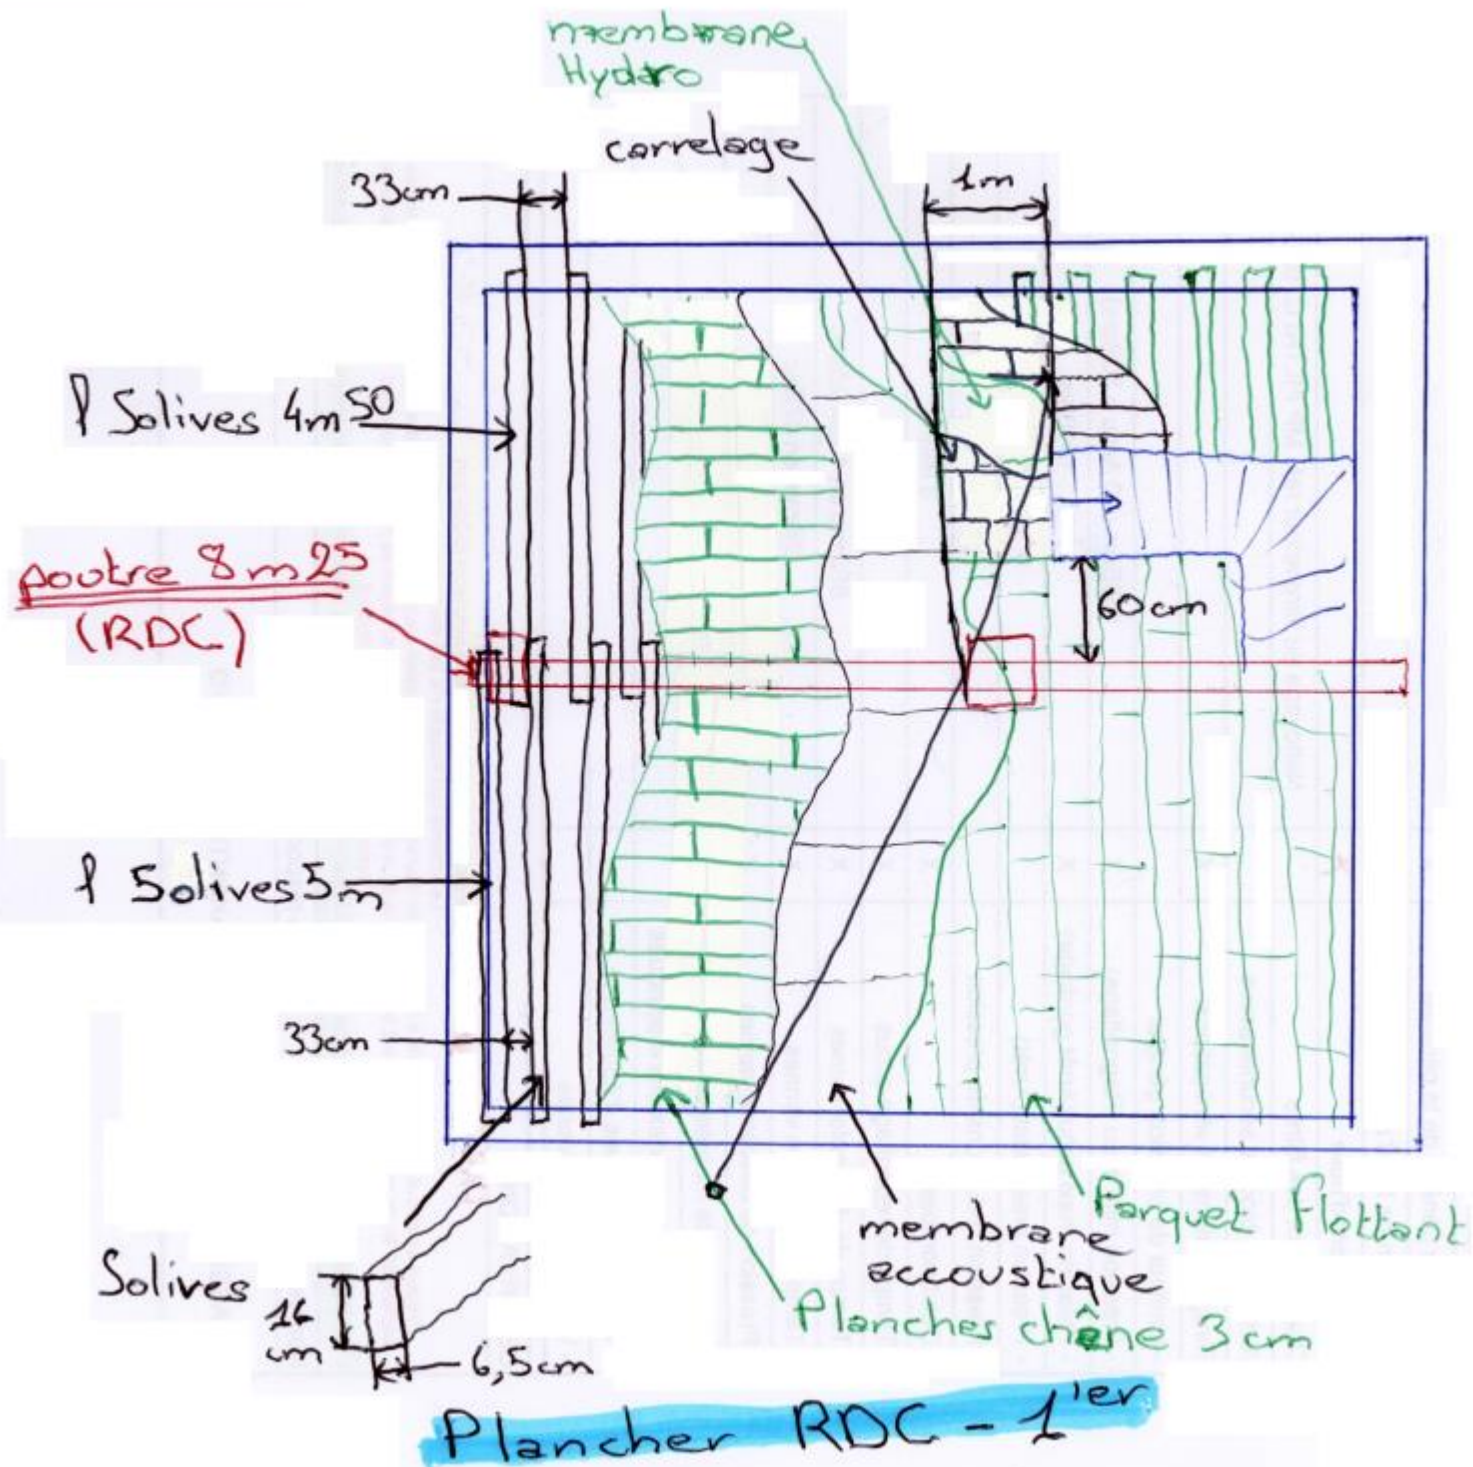 membrane
Hydro
carrelage
33cm
1m
l Solives 4m50
poutre 8m25
(RDC)
60cm
l Solives 5m
33cm
Parquet flottant
membrane
accoustique
Solives
16
cm
6,5cm
Planches chêne 3cm
Plancher RDC - 1'er